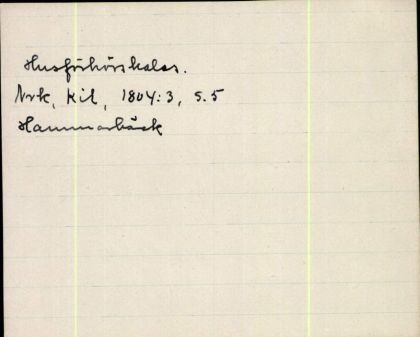 Husförhörskalas.
Nrk, Kil, 1804:3, S.5
Hammarbäck